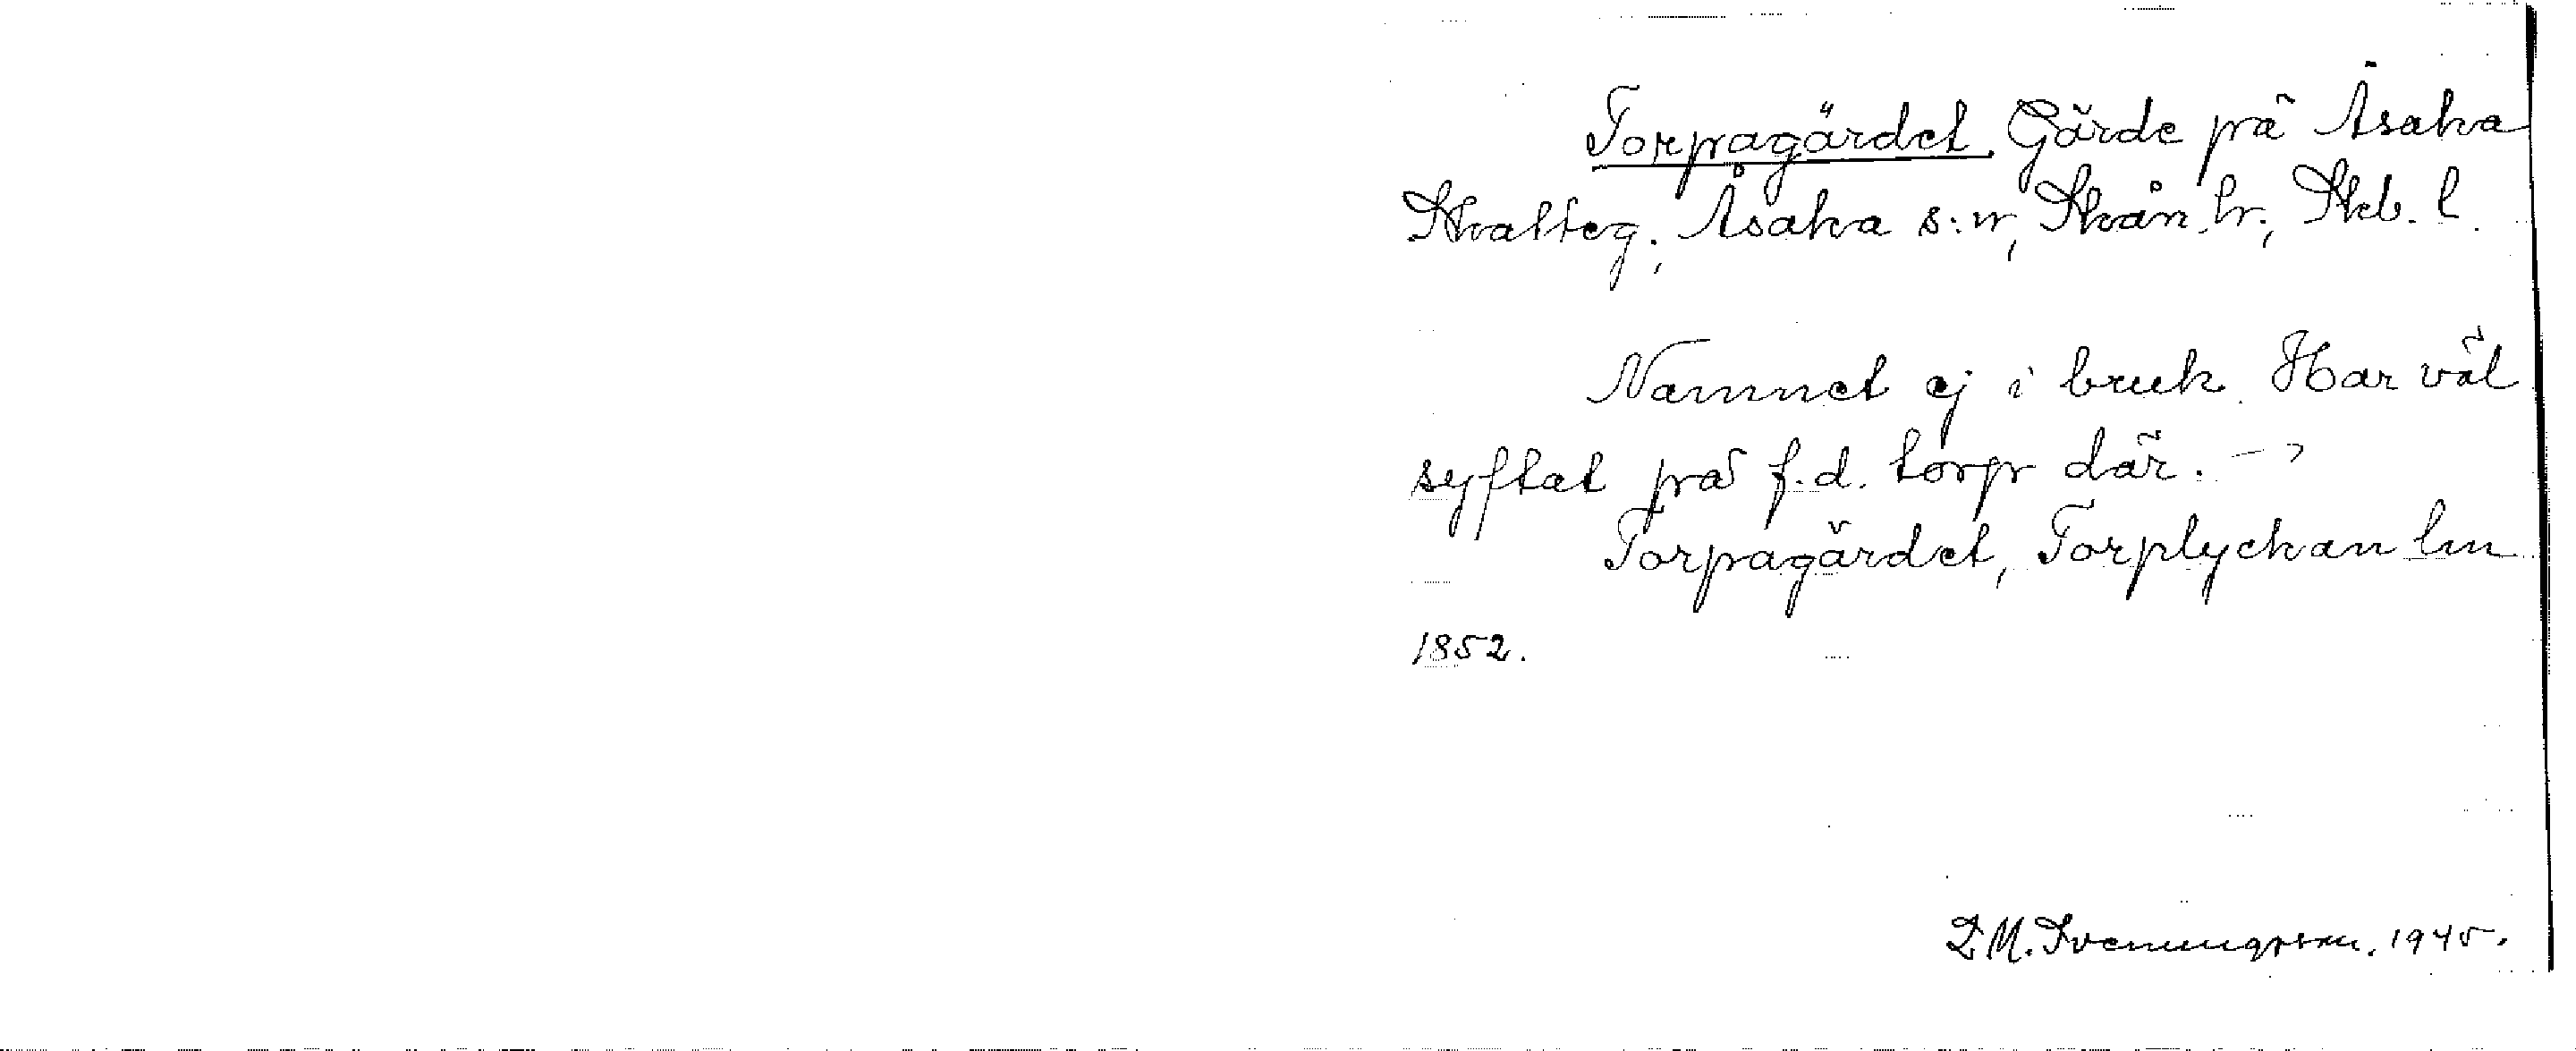 Torpagärdet. Gärde på Åsaka
Skatteg., Åsaka s:n, Skån. hr., Skb. l.
Namnet ej i bruk. Har väl
syftat på f.d. torp där. –
Torpagärdet, Torplyckan lm
1852.
D.M. Svenungsson. 1945.